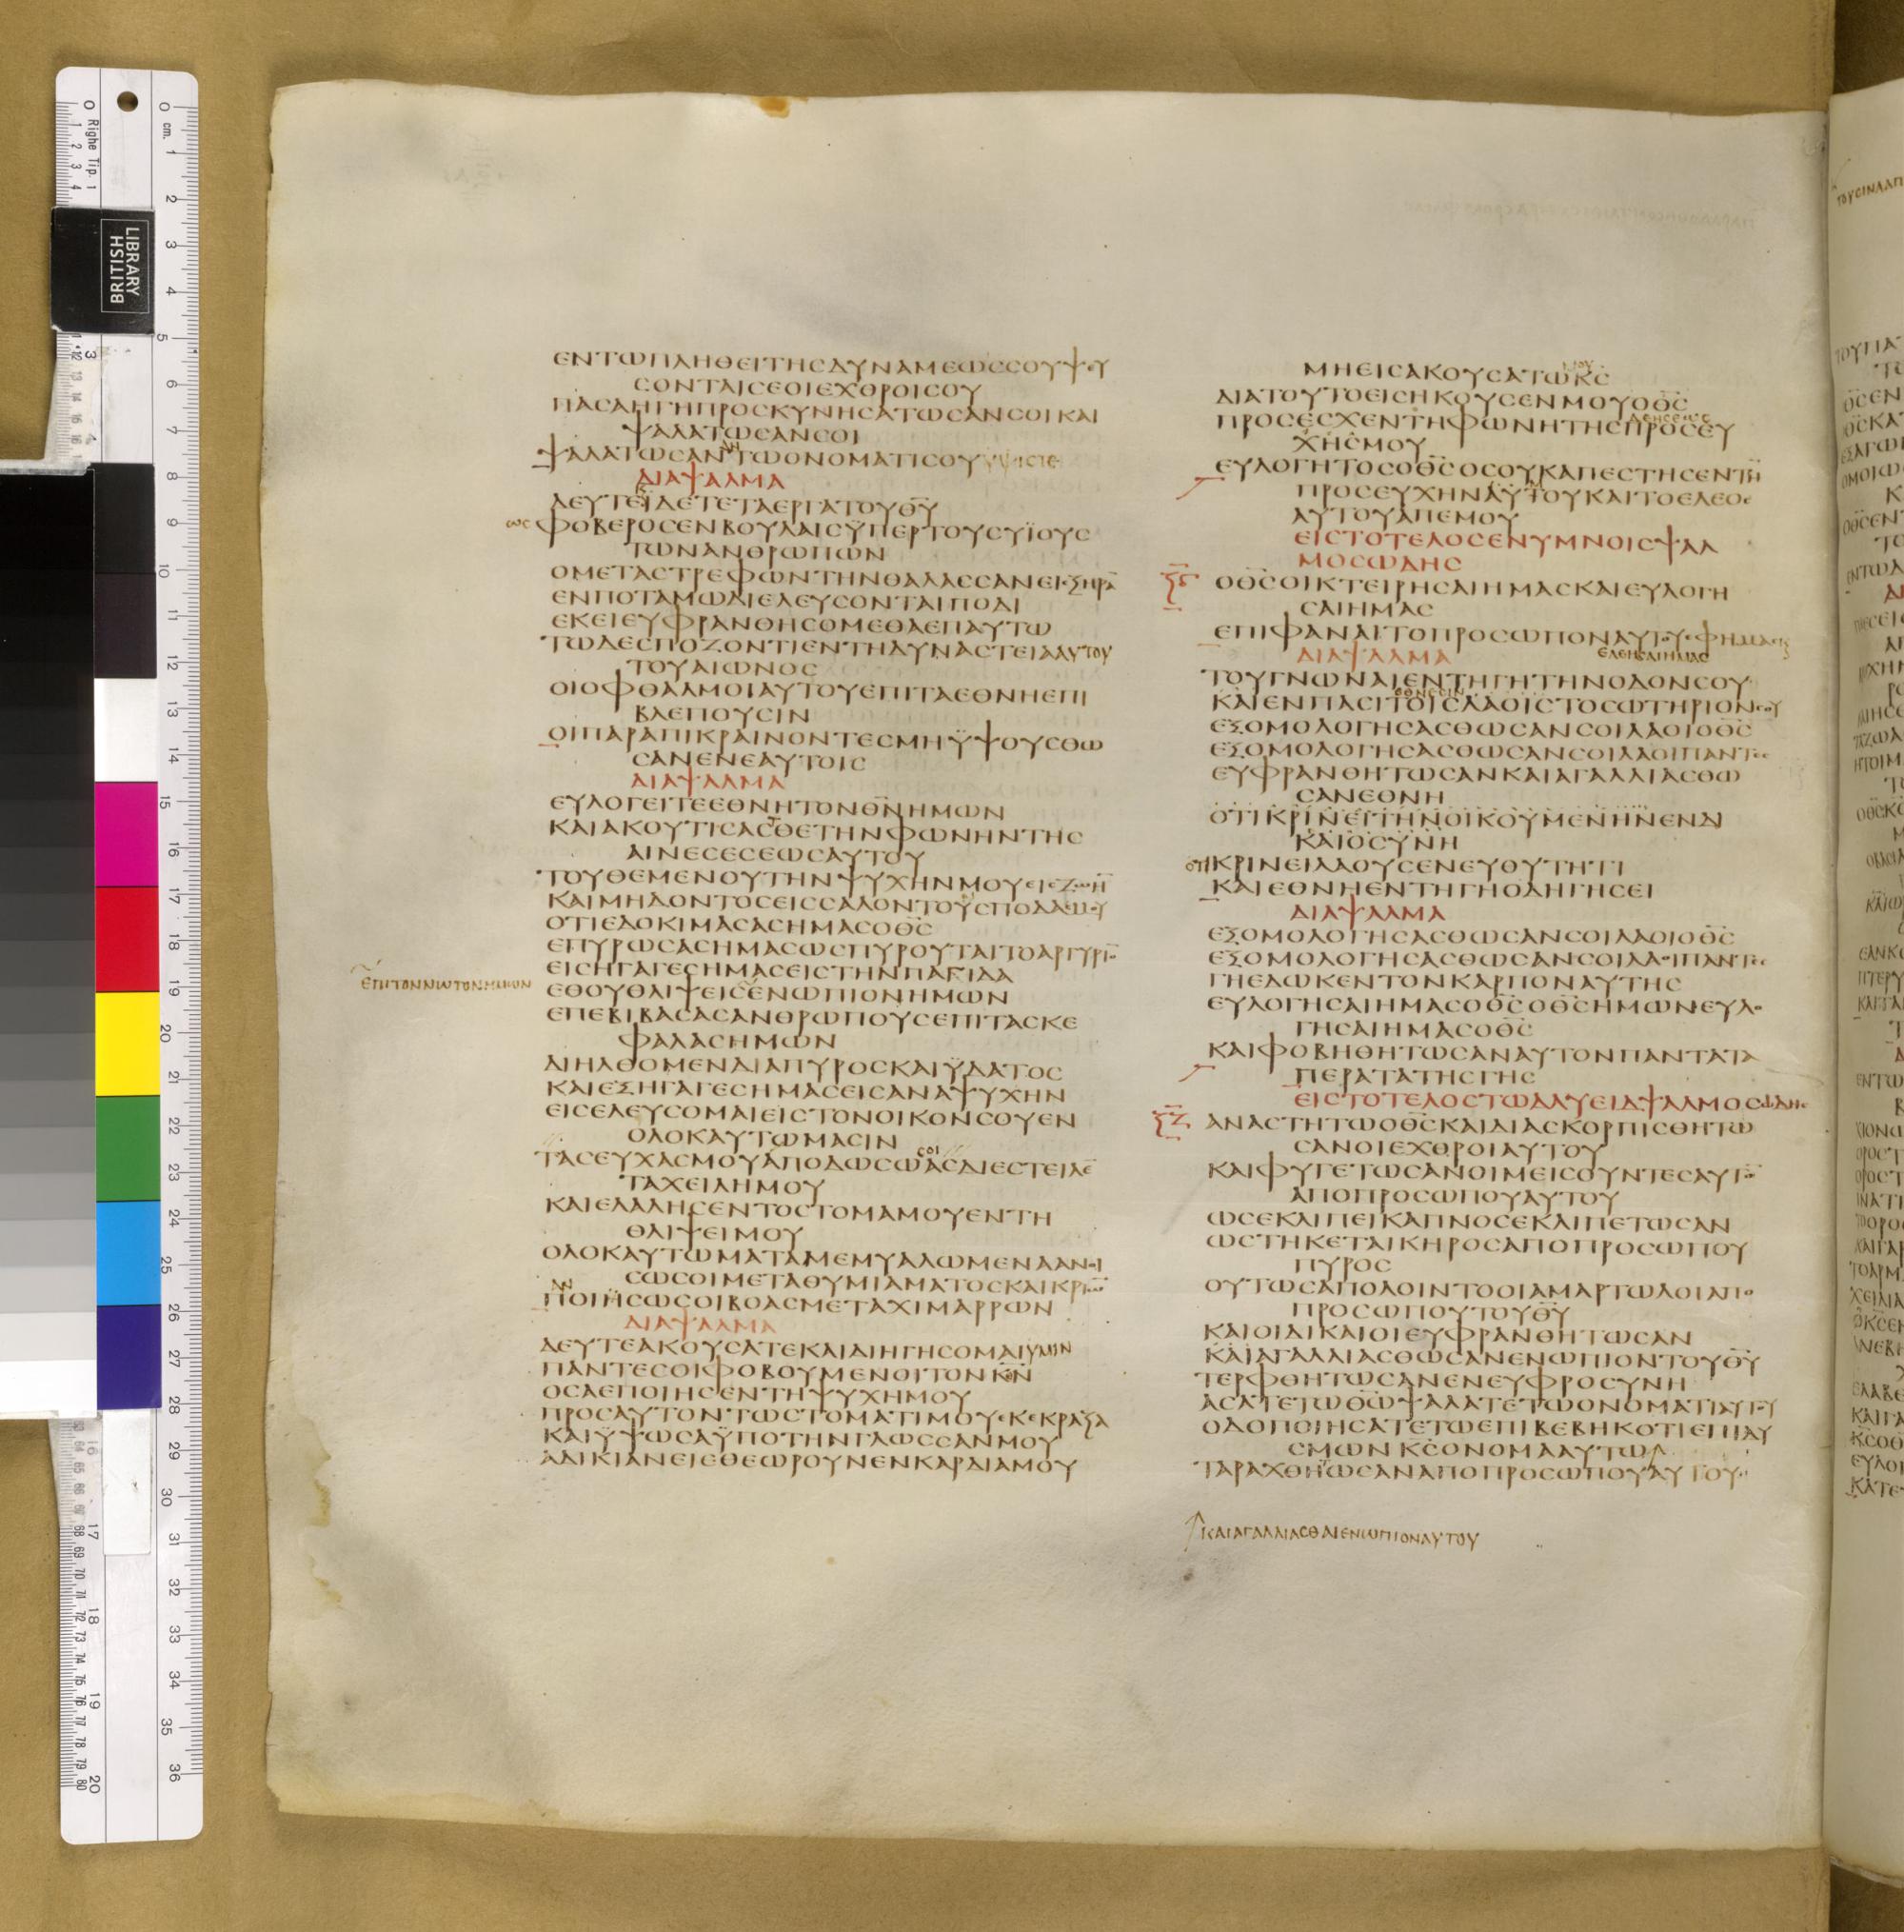 ΕΝΤΩΠΛΗΘΕΙΤΗΣΔΥΝΑΜΕΩΣΣΟΥΨΕΥ
ΣΟΝΤΑΙΣΕΟΙΕΧΘΡΟΙΣΟΥ
ΠΑΣΑΗΓΗΠΡΟΣΚΥΝΗΣΑΤΩΣΑΝΣΟΙΚΑΙ
ΨΑΛΑΤΩΣΑΝΣΟΙ
ΨΑΛΑΤΩΣΑΝΤΩΟΝΟΜΑΤΙΣΟΥΥΨΙΣΤΕ
ΔΙΑΨΑΛΜΑ
ΔΕΥΤΕΪΔΕΤΕΤΑΕΡΓΑΤΟΥΘ̅Υ̅
ωσ ΦΟΒΕΡΟΣΕΝΒΟΥΛΑΙΣΫΠΕΡΤΟΥΣΥΪΟΥΣ
ΤΩΝΑΝΘΡΩΠΩΝ
ΟΜΕΤΑΣΤΡΕΦΩΝΤΗΝΘΑΛΑΣΣΑΝΕΙΣΞΗΡΑ̅
ΕΝΠΟΤΑΜΩΔΙΕΛΕΥΣΟΝΤΑΙΠΟΔΙ
ΕΚΕΙΕΥΦΡΑΝΘΗΣΟΜΕΘΑΕΠΑΥΤΩ
ΤΩΔΕΣΠΟΖΟΝΤΙΕΝΤΗΔΥΝΑΣΤΕΙΑΑΥΤΟΥ
ΤΟΥΑΙΩΝΟΣ
ΟΙΟΦΘΑΛΜΟΙΑΥΤΟΥΕΠΙΤΑΕΘΝΗΕΠΙ
ΒΛΕΠΟΥΣΙΝ
ΟΙΠΑΡΑΠΙΚΡΑΙΝΟΝΤΕΣΜΗΫΨΟΥΣΘΩ
ΣΑΝΕΝΕΑΥΤΟΙΣ
ΔΙΑΨΑΛΜΑ
ΕΥΛΟΓΕΙΤΕΕΘΝΗΤΟΝΘ̅Ν̅ΗΜΩΝ
ΚΑΙΑΚΟΥΤΙΣΑΣΘΕΤΗΝΦΩΝΗΝΤΗΣ
ΑΙΝΕΣΕΣΕΩΣΑΥΤΟΥ
ΤΟΥΘΕΜΕΝΟΥΤΗΝΨΥΧΗΝΜΟΥΕΙΣΖΩΗ̅
ΚΑΙΜΗΔΟΝΤΟΣΕΙΣΣΑΛΟΝΤΟΥΣΠΟΔΑΣΜΟΥ
ΟΤΙΕΔΟΚΙΜΑΣΑΣΗΜΑΣΟΘ̅Σ̅
ΕΠΥΡΩΣΑΣΗΜΑΣΩΣΠΥΡΟΥΤΑΙΤΟΑΡΓΥΡΙΟ̅
ΕΙΣΗΓΑΓΕΣΗΜΑΣΕΙΣΤΗΝΠΑΓΙΔΑ
ΕΠΙΤΟΝΝΩΤΟΝΗΜΩΝ
ΕΘΟΥΘΛΙΨΕΙΣΕΝΩΠΙΟΝΗΜΩΝ
ΕΠΕΒΙΒΑΣΑΣΑΝΘΡΩΠΟΥΣΕΠΙΤΑΣΚΕ
ΦΑΛΑΣΗΜΩΝ
ΔΙΗΛΘΟΜΕΝΔΙΑΠΥΡΟΣΚΑΙΫΔΑΤΟΣ
ΚΑΙΕΞΗΓΑΓΕΣΗΜΑΣΕΙΣΑΝΑΨΥΧΗΝ
ΕΙΣΕΛΕΥΣΟΜΑΙΕΙΣΤΟΝΟΙΚΟΝΣΟΥΕΝ
ΟΛΟΚΑΥΤΩΜΑΣΙΝ
ΣΟΙ
ΤΑΣΕΥΧΑΣΜΟΥΑΠΟΔΩΣΩΑΣΔΙΕΣΤΕΙΛΕ
ΤΑΧΕΙΛΗΜΟΥ
ΚΑΙΕΛΑΛΗΣΕΝΤΟΣΤΟΜΑΜΟΥΕΝΤΗ
ΘΛΙΨΕΙΜΟΥ
ΟΛΟΚΑΥΤΩΜΑΤΑΜΕΜΥΑΛΩΜΕΝΑΑΝΟΙ
ΣΩΣΟΙΜΕΤΑΘΥΜΙΑΜΑΤΟΣΚΑΙΚΡΙΩ̅
ΠΟΙΗΣΩΣΟΙΒΟΑΣΜΕΤΑΧΙΜΑΡΡΩΝ
ΔΙΑΨΑΛΜΑ
ΔΕΥΤΕΑΚΟΥΣΑΤΕΚΑΙΔΙΗΓΗΣΟΜΑΙΥΜΙΝ
ΠΑΝΤΕΣΟΙΦΟΒΟΥΜΕΝΟΙΤΟΝΚ̅Ν̅
ΟΣΑΕΠΟΙΗΣΕΝΤΗΨΥΧΗΜΟΥ
ΠΡΟΣΑΥΤΟΝΤΩΣΤΟΜΑΤΙΜΟΥΕΚΕΚΡΑΞΑ
ΚΑΙΫΨΩΣΑΫΠΟΤΗΝΓΛΩΣΣΑΝΜΟΥ
ΑΔΙΚΙΑΝΕΙΕΘΕΩΡΟΥΝΕΝΚΑΡΔΙΑΜΟΥ
ΜΗΕΙΣΑΚΟΥΣΑΤΩΚ̅Σ̅
ΔΙΑΤΟΥΤΟΕΙΣΗΚΟΥΣΕΝΜΟΥΟΘ̅Σ̅
ΔΕΗΣΕΩΣ
ΠΡΟΣΕΣΧΕΝΤΗΦΩΝΗΤΗΣΠΡΟΣΕΥ
ΧΗΣΜΟΥ
ΕΥΛΟΓΗΤΟΣΟΘ̅Σ̅ΟΣΟΥΚΑΠΕΣΤΗΣΕΝΤΗ̅
ΠΡΟΣΕΥΧΗΝΑΥΤΟΥΚΑΙΤΟΕΛΕΟΣ
ΑΥΤΟΥΑΠΕΜΟΥ
ΕΙΣΤΟΤΕΛΟΣΕΝΥΜΝΟΙΣΨΑΛ
ΜΟΣΩΔΗΣ
ΞϚ ΟΘ̅Σ̅ΟΙΚΤΕΙΡΗΣΑΙΗΜΑΣΚΑΙΕΥΛΟΓΗ
ΣΑΙΗΜΑΣ
ΕΠΙΦΑΝΑΙΤΟΠΡΟΣΩΠΟΝΑΥΤΟΥΕΦΗΜΑΣ
ΔΙΑΨΑΛΜΑ
ΕΛΕΗΣΑΙΗΜΑΣ
ΤΟΥΓΝΩΝΑΙΕΝΤΗΓΗΤΗΝΟΔΟΝΣΟΥ
ΕΘΝΕΣΙΝ
ΚΑΙΕΝΠΑΣΙΤΟΙΣΛΑΟΙΣΤΟΣΩΤΗΡΙΟΝΣΟΥ
ΕΞΟΜΟΛΟΓΗΣΑΣΘΩΣΑΝΣΟΙΛΑΟΙΟΘ̅Σ̅
ΕΞΟΜΟΛΟΓΗΣΑΣΘΩΣΑΝΣΟΙΛΑΟΙΠΑΝΤΕΣ
ΕΥΦΡΑΝΘΗΤΩΣΑΝΚΑΙΑΓΑΛΛΙΑΣΘΩ
ΣΑΝΕΘΝΗ
ΟΤΙΚΡΙΝΕΙΤΗΝΟΙΚΟΥΜΕΝΗΝΕΝΔΙ
ΚΑΙΟΣΥΝΗ
ΟΤΙΚΡΙΝΕΙΛΑΟΥΣΕΝΕΥΘΥΤΗΤΙ
ΚΑΙΕΘΝΗΕΝΤΗΓΗΟΔΗΓΗΣΕΙ
ΔΙΑΨΑΛΜΑ
ΕΞΟΜΟΛΟΓΗΣΑΣΘΩΣΑΝΣΟΙΛΑΟΙΟΘ̅Σ̅
ΕΞΟΜΟΛΟΓΗΣΑΣΘΩΣΑΝΣΟΙΛΑΟΙΠΑΝΤΕΣ
ΓΗΕΔΩΚΕΝΤΟΝΚΑΡΠΟΝΑΥΤΗΣ
ΕΥΛΟΓΗΣΑΙΗΜΑΣΟΘ̅Σ̅ΟΘ̅Σ̅ΗΜΩΝΕΥΛΟ
ΓΗΣΑΙΗΜΑΣΟΘ̅Σ̅
ΚΑΙΦΟΒΗΘΗΤΩΣΑΝΑΥΤΟΝΠΑΝΤΑΤΑ
ΠΕΡΑΤΑΤΗΣΓΗΣ
ΕΙΣΤΟΤΕΛΟΣΤΩΔΑΥΕΙΔΨΑΛΜΟΣΩΔΗΣ
ΞΖ ΑΝΑΣΤΗΤΩΟΘ̅Σ̅ΚΑΙΔΙΑΣΚΟΡΠΙΣΘΗΤΩ
ΣΑΝΟΙΕΧΘΡΟΙΑΥΤΟΥ
ΚΑΙΦΥΓΕΤΩΣΑΝΟΙΜΕΙΣΟΥΝΤΕΣΑΥΤΟ̅
ΑΠΟΠΡΟΣΩΠΟΥΑΥΤΟΥ
ΩΣΕΚΛΙΠΕΙΚΑΠΝΟΣΕΚΛΙΠΕΤΩΣΑΝ
ΩΣΤΗΚΕΤΑΙΚΗΡΟΣΑΠΟΠΡΟΣΩΠΟΥ
ΠΥΡΟΣ
ΟΥΤΩΣΑΠΟΛΟΙΝΤΟΟΙΑΜΑΡΤΩΛΟΙΑΠΟ
ΠΡΟΣΩΠΟΥΤΟΥΘ̅Υ̅
ΚΑΙΟΙΔΙΚΑΙΟΙΕΥΦΡΑΝΘΗΤΩΣΑΝ
ΚΑΙΑΓΑΛΛΙΑΣΘΩΣΑΝΕΝΩΠΙΟΝΤΟΥΘ̅Υ̅
ΤΕΡΦΘΗΤΩΣΑΝΕΝΕΥΦΡΟΣΥΝΗ
ΑΣΑΤΕΤΩΘ̅Ω̅ΨΑΛΑΤΕΤΩΟΝΟΜΑΤΙΑΥΤΟΥ
ΟΔΟΠΟΙΗΣΑΤΕΤΩΕΠΙΒΕΒΗΚΟΤΙΕΠΙΔΥ
ΣΜΩΝΚ̅Σ̅ΟΝΟΜΑΑΥΤΩ
ΤΑΡΑΧΘΗΤΩΣΑΝΑΠΟΠΡΟΣΩΠΟΥΑΥΤΟΥ
ΚΑΙΑΓΑΛΛΙΑΣΘΑΙΕΝΩΠΙΟΝΑΥΤΟΥ
BRITISH
LIBRARY
Righe Tip. 1
cm.